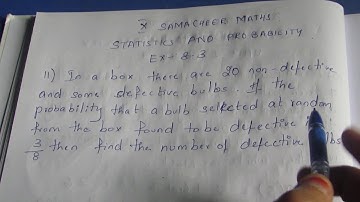 X SAMACHEER MATHS
STATISTICS AND PROBABILITY
Ex - 8.3
11) In a box there are 20 non-defective
and some defective bulbs. If the
probability that a bulb selected at random
from the box found to be defective is
3/8 then find the number of defective bulbs